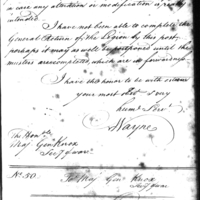 in case any alteration or modification is
intended.
I have not been able to complete the
General Return of the Legion by this post,
perhaps it may as well be postponed until the
musters are completed, which are in forwardness.
I have the honor to be with
your most Obt & very
huml Servt
Wayne
The Honble
Maj Genl Knox
Secy of War
No. 50. To Maj Genl Knox
Secy of War